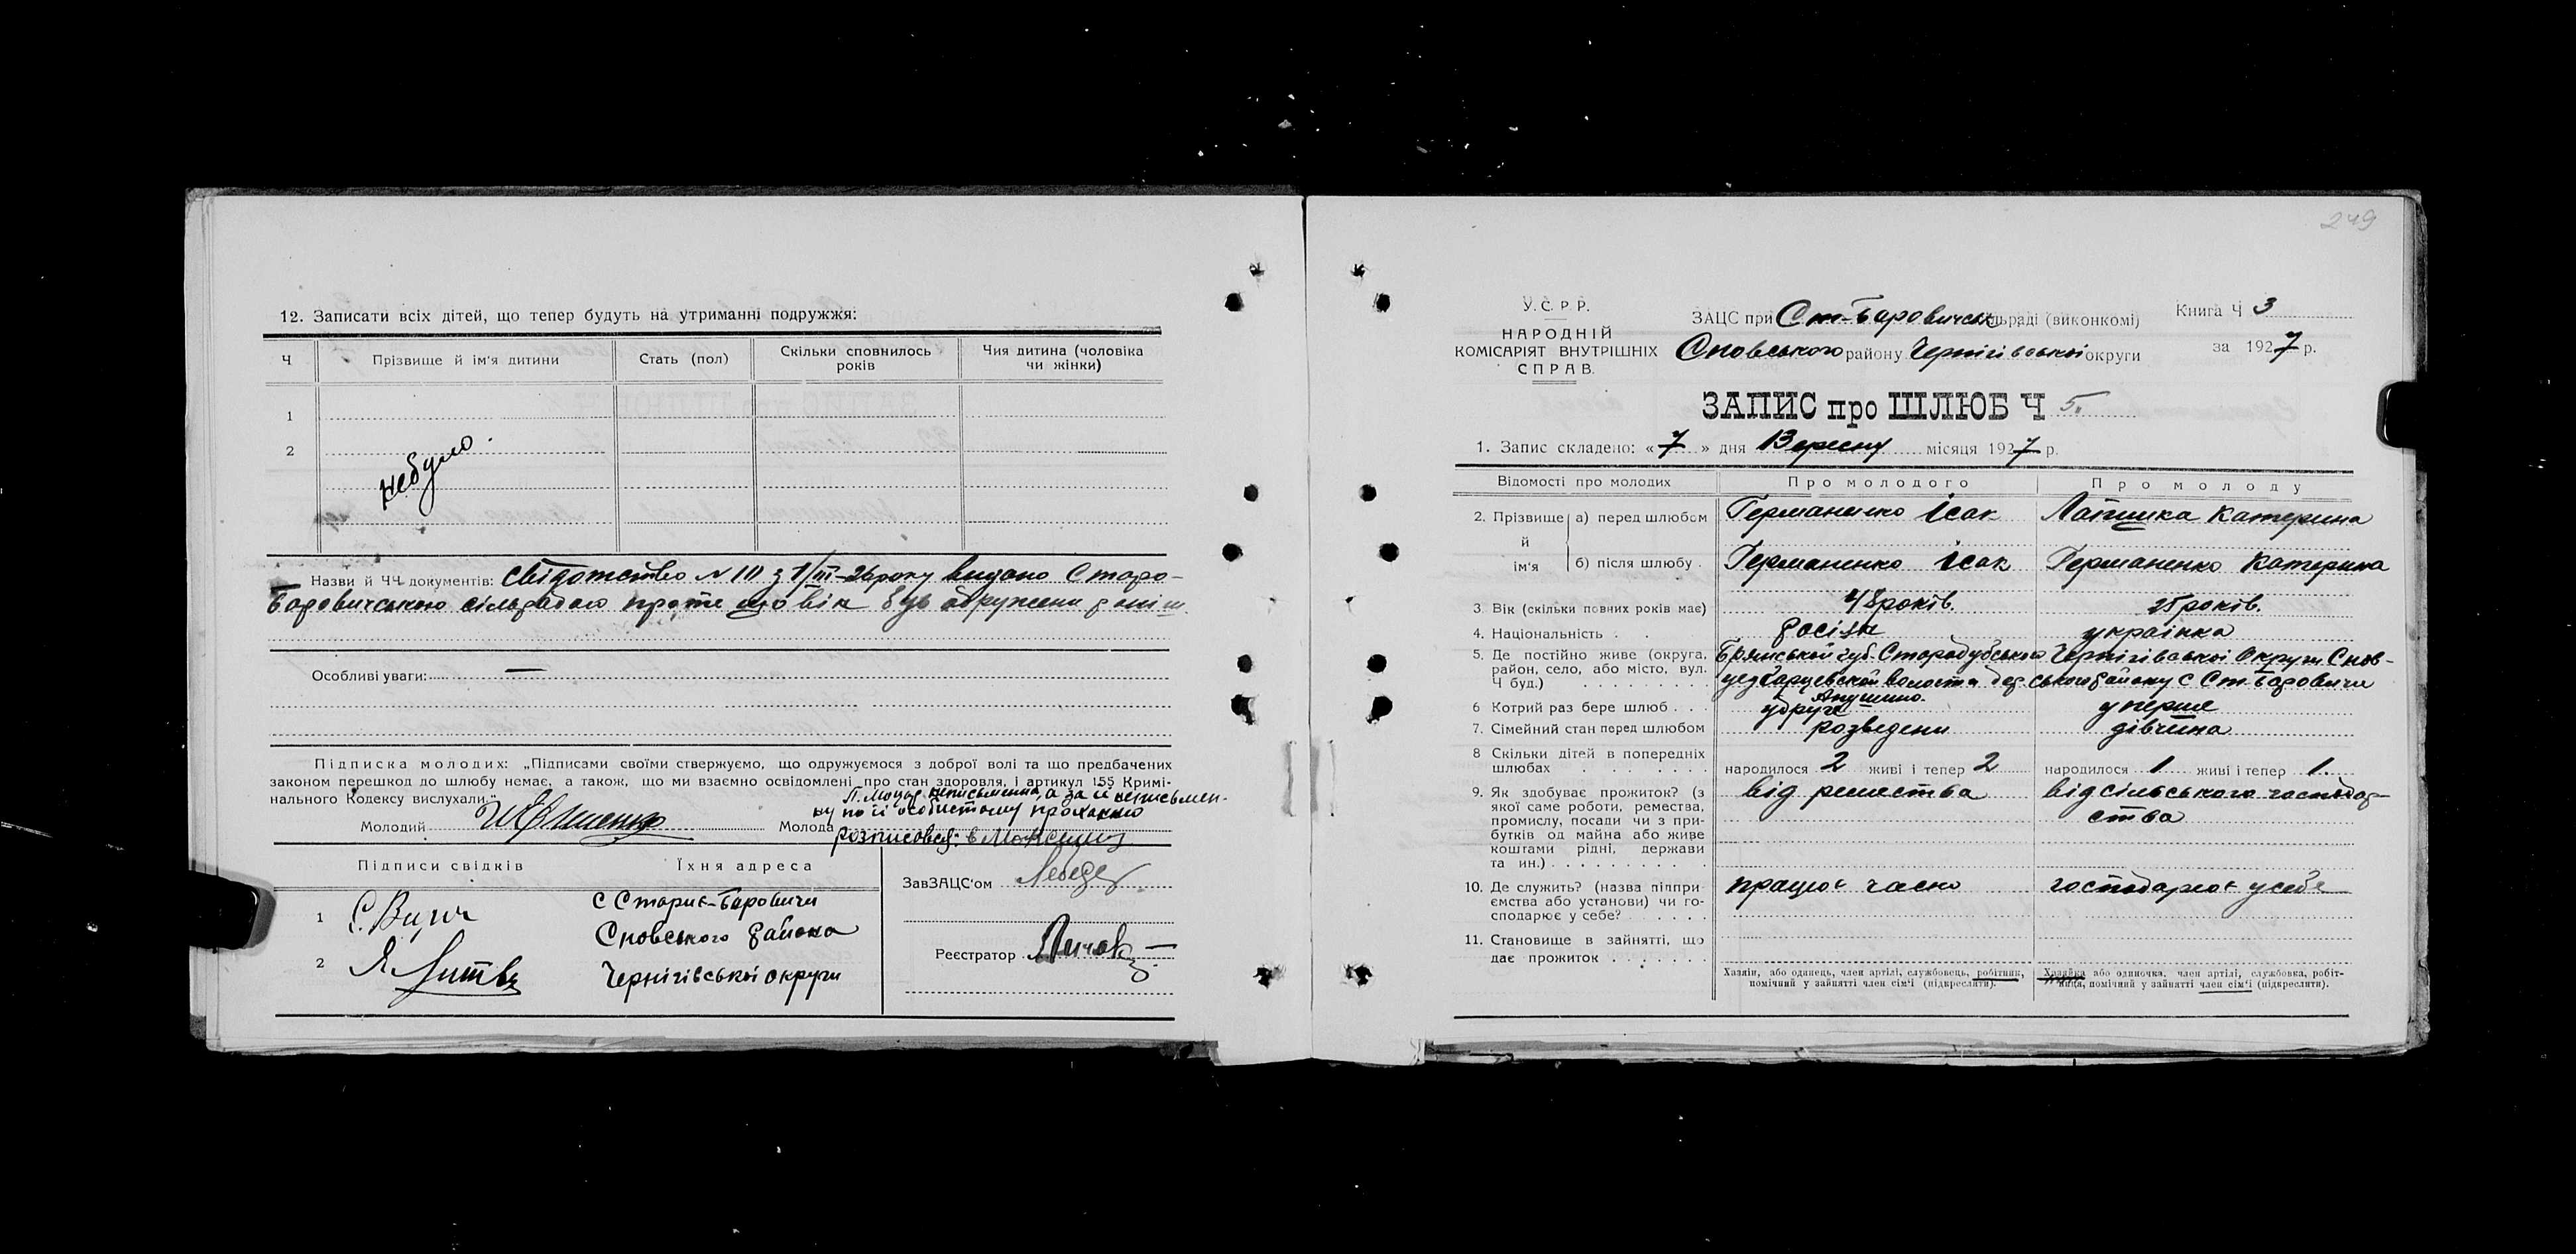 12. Записати всіх дітей, що тепер будуть на утриманні подружжя:
Ч
Прізвище й ім'я дитини
Стать (пол)
Скільки сповнилось років
Чия дитина (чоловіка чи жінки)
1
2
небуло
Назви й ЧЧ документів: свідотство N 111 з 1/III-26 року видано Старо-
Боровичською сільрадою проте що він був одружени
Особливі уваги: —
Підписка молодих: „Підписами своїми ствержуємо, що одружуємося з доброї волі та що предбачених
законом перешкод до шлюбу немає, а також, що ми взаємно освідомлені про стан здоровля, і артикул 155 Кримі-
нального Кодексу вислухали."
неписьменна, а за її неписьмен-
ну по її особистому проханню
Молодий
Молода
розписовся:
Підписи свідків
Їхня адреса
ЗавЗАЦС'ом
1
с Старие-Боровичи
Сновського району
Реєстратор
2
Чернігівської округи
249
У.С.Р.Р.
НАРОДНІЙ
КОМІСАРІЯТ ВНУТРІШНІХ
СПРАВ.
ЗАЦС при Ст-Боровичськ сільраді (виконкомі)
Сновського району Чернігівської округи
Книга Ч 3
за 1927 р.
ЗАПИС про ШЛЮБ Ч 5.
1. Запис складено: «7» дня Вересня місяця 1927 р.
Відомості про молодих
Про молодого
Про молоду
2. Прізвище й ім'я
а) перед шлюбом
Германенко Ісак
Катерина
б) після шлюбу
Германенко Ісак
Германенко Катерина
3. Вік (скільки повних років має)
48 років.
25 років.
4. Національність
українка
5. Де постійно живе (округа, район, село, або місто, вул. Ч буд.)
Брянської губ. Стародубського
Чернігівської Округи Снов-
ського району с Ст-Боровичи
6 Котрий раз бере шлюб
удруге
уперше
7. Сімейний стан перед шлюбом
розведени
дівчина
8 Скільки дітей в попередніх шлюбах
народилося 2 живі і тепер 2
народилося 1 живі і тепер 1
9. Як здобуває прожиток? (з якої саме роботи, ремества, промислу, посади чи з прибутків од майна або живе коштами рідні, держави та ин.)
від ремества
від сільського господар-
ства
10. Де служить? (назва підприємства або установи) чи господарює у себе?
працює часно
господарює усебе
11. Становище в зайнятті, що дає прожиток
Хазяїн, або одинець, член артілі, службовець, робітник,
помічний у зайнятті член сім'ї (підкреслити).
Хазяйка або одиночка, член артілі, службовка, робіт-
ниця, помічний у зайнятті член сім'ї (підкреслити).